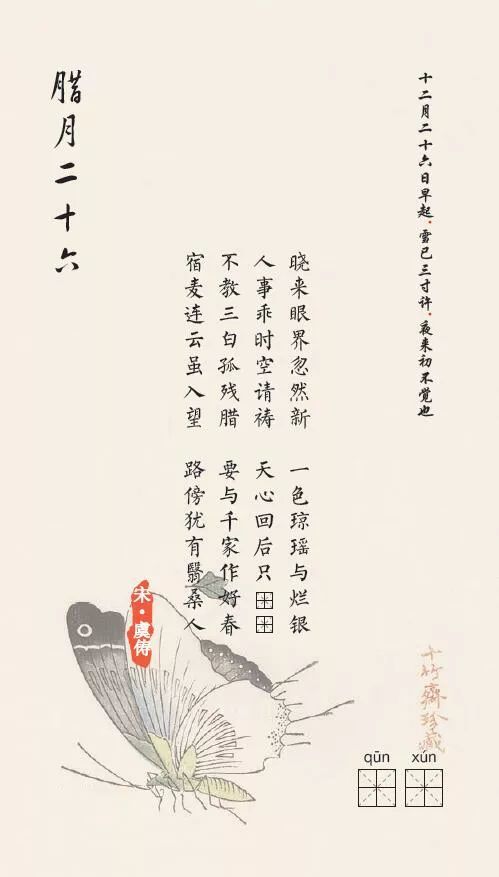 十二月二十六日早起·雪已三寸许·夜来初不觉也
腊月二十六
晓来眼界忽然新 一色琼瑶与烂银
人事乖时空请祷 天心回后只
不教三白孤残腊 要与千家作好春
宿麦连云虽入望 路傍犹有翳桑人
宋·虞俦
十竹齋珍藏
qūn xún